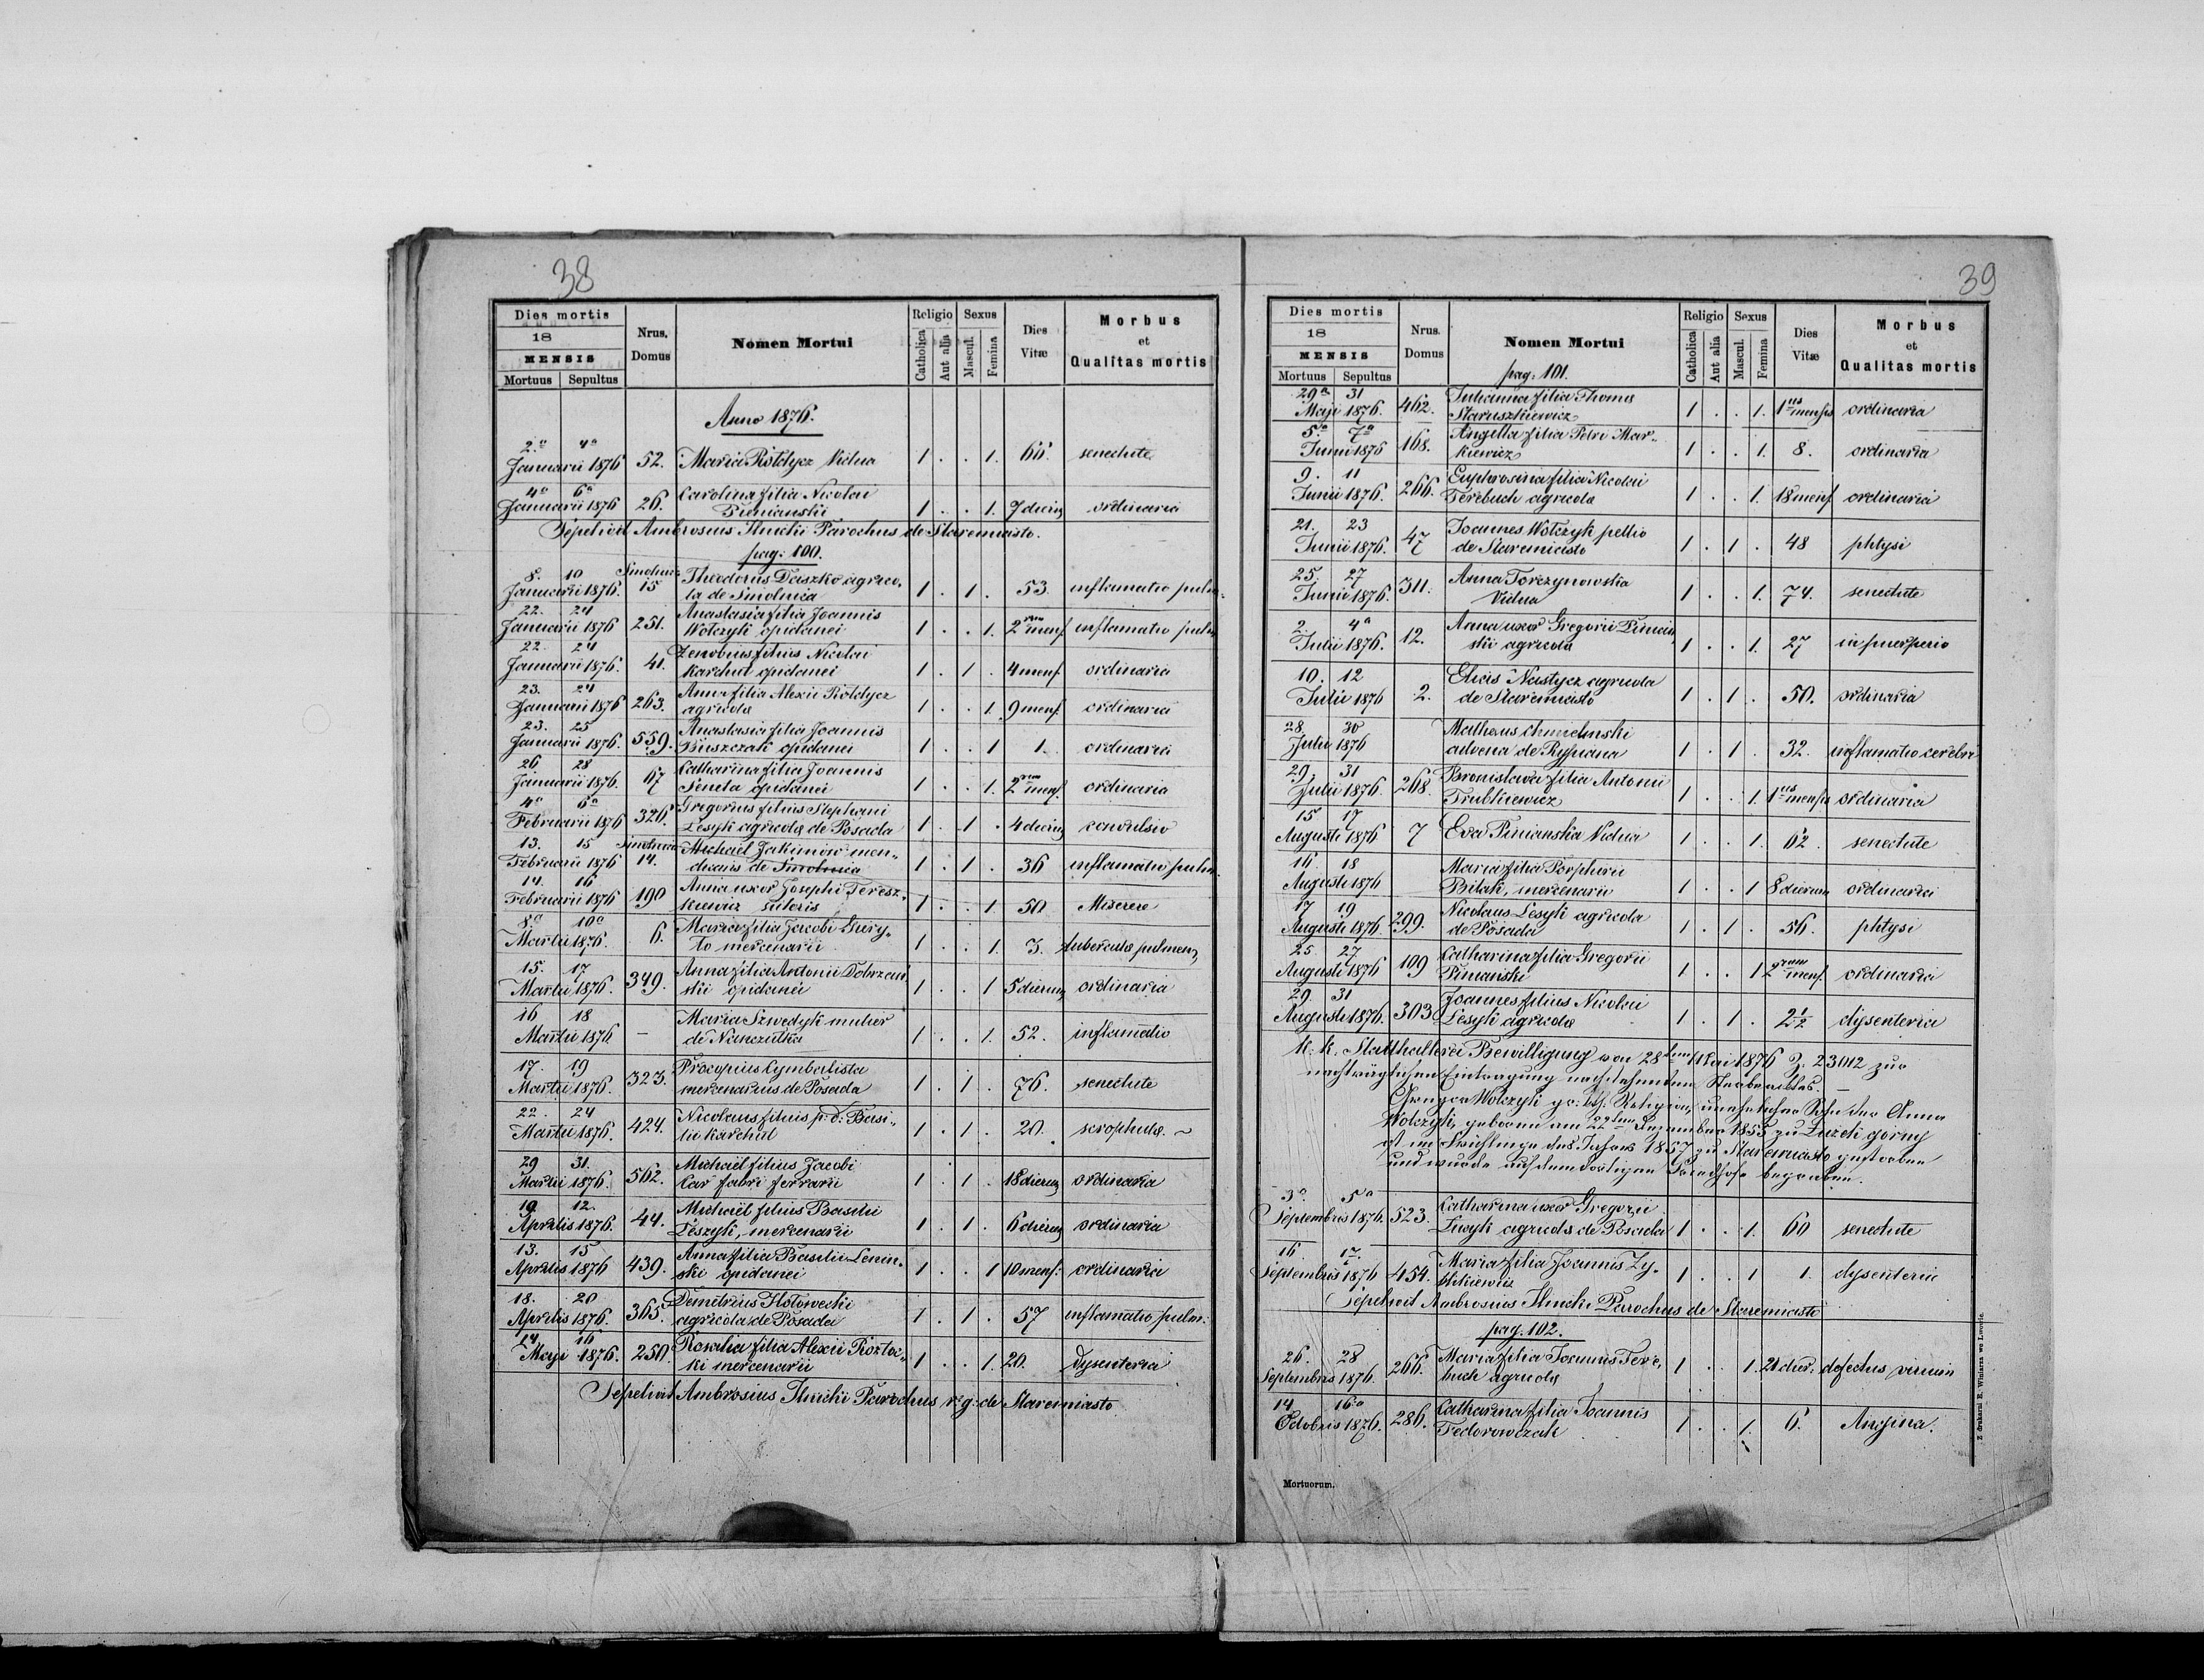 38
Dies mortis Nrus. Domus Nomen Mortui Religio Sexus Dies Vitæ Morbus et Qualitas mortis
18
MENSIS
Mortuus Sepultus Catholica Aut alia Mascul. Femina
Anno 1876.
2.a 4a
Januarii 1876 52. Maria Rotdycz Vidua 1 . . 1. 66. senectute
4a 6a Carolina filia Nicolai
Januarii 1876 26. Piniański 1 . . 1. 7 dierum ordinaria
Sepelivit Ambrosius Ilnicki Parochus de Staremiasto.
pag: 100.
8. 10 Theodorus Daszko agrico,
Januarii 1876. 15 la de Smolnica 1 . 1 . 53. inflamatio pulm.
22. 24 Anastasia filia Joannis
Januarii 1876 251. Wotczyk opidanei 1 . . 1. 2 mens. inflamatio pulm
22. 24 Zenobius filius Nicolai
Januarii 1876. 41. Karchut opidanei 1 . 1 . 4 mens. ordinaria
23. 24 Anna filia Alexii Rotdycz
Januarii 1876 263. agricola 1 . . 1 9 mens. ordinaria
23. 25 Anastasia filia Joannis
Januarii 1876. 559. opidanei 1 . . 1 1. ordinaria
26 28 Catharina filia Joannis
Januarii 1876. 67 Seneta opidanei 1 . . 1. 2 mens. ordinaria
4a 6a Gregorius filius Stephani
Februarii 1876 326. Lesyk agricola de Posada 1 . 1 . 4 dierum convulsio
13. 15 Smolnica Michael Jakimów men,
Februarii 1876 14. dicans de Smolnica 1 . 1 . 36 inflamatio pulm.
14. 16 Anna uxor Josephi Teresz,
Februarii 1876 190 kiewicz sutoris 1 . . 1. 50 Miserere
8.a 10a Maria filia Jacobi
Martii 1876. 6. to mercenarii 1 . . 1. 3. tubercula pulmon
15. 17 Anna filia Antonii Dobrzań
Martii 1876. 349. ski opidanei 1 . . 1 5 dierum ordinaria
16 18 Maria Szwedyk mulier
Martii 1876 – de Nanczułka 1 . . 1. 52. inflamatio
17. 19 Procopius Cymbalista
Martii 1876. 323. mercenarius de Posada 1 . 1 . 76. senectute
22. 24 Nicolaus filius p. d. Basi,
Martii 1876. 424. lii Karchut 1 . 1 . 20. scrophula. ~
29 31. Michaël filius Jacobi
Martii 1876. 562. Car fabri ferrarii 1 . 1 . 18 dierum ordinaria
10 12. Michaël filius Basilii
Aprilis 1876. 44. Leszyk, mercenarii 1 . 1 . 6 dierum ordinaria
13. 15 Anna filia Basilii Lenin,
Aprilis 1876 439. ski opidanei 1 . . 1 10 mens: ordinaria
18. 20 Demetrius Hotowecki
Aprilis 1876. 365. agricola de Posada 1 . 1 . 57 inflamatio pulm.
14 16 Rosalia filia Alexii
Maji 1876. 250. ki mercenarii 1 . . 1. 20. Dysenteria
Sepelivit Ambrosius Ilnicki Parochus r: g: de Staremiasto.
39
Dies mortis Nrus. Domus Nomen Mortui Religio Sexus Dies Vitæ Morbus et Qualitas mortis
18
MENSIS
Mortuus Sepultus Catholica Aut alia Mascul. Femina
pag: 101.
29a 31 Julianna filia Thoma
Maji 1876. 462. Staruszkiewicz 1 . . 1. 1us mensis ordinaria
5.a 7a Angella filia Petri Mar,
Junii 1876 168. kiewicz 1 . . 1. 8. ordinaria
9. 11 Euphrosina filia Nicolai
Junii 1876. 266. Terebuch agricola 1 . . 1. 18 mens. ordinaria
21. 23 Joannes Wotczyk pellio
Junii 1876. 47 de Staremiasto 1 . 1 . 48 phtysi
25. 27 Anna Torczynowska
Junii 1876. 311. Vidua 1 . . 1. 74. senectute
2. 4a Anna uxor Gregorii Piniań
Julii 1876. 12. ski agricola 1 . . 1. 27 in puerperio
10. 12 Elias Nastycz agricola
Julii 1876 2. de Staremiasto 1 . 1 . 50. ordinaria
28 30 Matheus Chmielinski
Julii 1876 advena de Rypiana 1 . 1 . 32. inflamatio cerebri
29. 31 Bronislava filia Antonii
Julii 1876. 268. Trubkiewicz 1 . . 1. 1us mensis ordinaria
15 17
Augusti 1876 7 Eva Pinianska Vidua 1 . . 1. 62. senectute
16 18 Maria filia Porphirii
Augusti 1876 Bilak, mercenarii 1 . . 1 8 dierum ordinaria
17 19 Nicolaus Lesyk agricola
Augusti 1876. 299. de Posada 1 . 1 . 56. phtysi
25. 27 Catharina filia Gregorii
Augusti 1876 109 Piniański 1 . . 1 2 mens. ordinaria
29. 31 Joannes filius Nicolai
Augusti 1876. 303 Lesyk agricola 1 . 1 . 2 1/2 dysenteria
K. k. Statthalterei Bewilligung von 28ten Mai 1876 Z. 23012 zur
nachträglichen Eintragung nachstehenden Sterbeaktes. –
Wotczyk gr: kth: Religion, unehelicher Sohn der Anna
Wotczyk, geboren am 22ten Dezember 1855 zu Łużek górny
ist im Frühlinge des Jahres 1857 zu Staremiasto gestorben
und wurde auf dem dortigen Friedhofe begraben.
3a. 5a Catharina uxor Gregorii
Septembris 1876. 523. agricola de Posada 1 . . 1. 60 senectute
16 17. Maria filia Joannis Zy,
Septembris 1876 454. 1 . . 1 1. dysenteria
Sepelivit Ambrosius Ilnicki Parochus de Staremiasto
pag. 102.
26. 28 Maria filia Joannis Tere,
Septembris 1876. 266. buch agricola 1 . . 1. 21 dier. defectus virium
14 16.a Catharina filia Joannis
Octobris 1876. 286. Fedorowczak 1 . . 1. 6. Angina.
Mortuorum.
Z drukarni E. Winiarza we Lwowie.